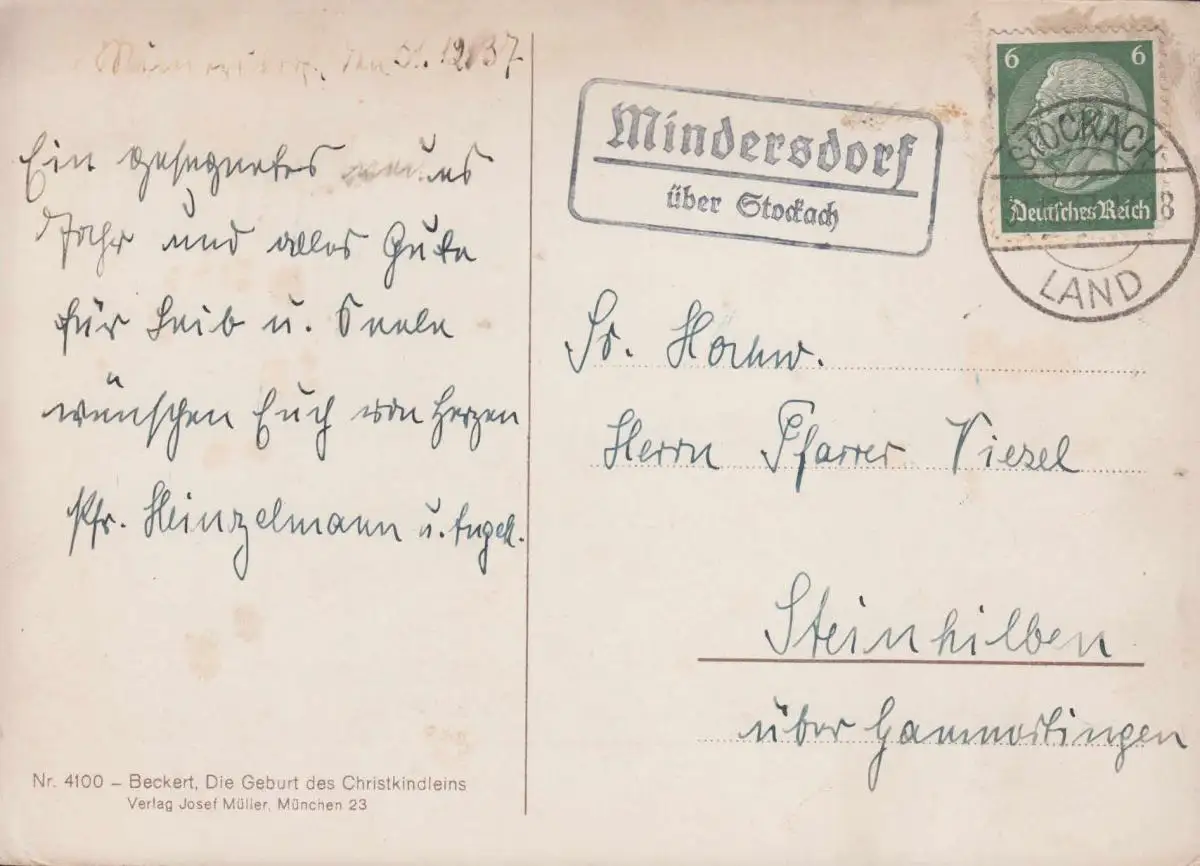 Mindersdorf, den 31.12.37
Ein gesegnetes neues
Jahr und alles Gute
für Leib u. Seele
wünschen Euch von Herzen
Pfr. Heinzelmann u. Angeh.
Nr. 4100 – Beckert, Die Geburt des Christkindleins
Verlag Josef Müller, München 23
Mindersdorf
über Stockach
6 6
Deutsches Reich
STOCKACH
8
LAND
Sr. Hochw.
Herrn Pfarrer Viesel
Steinhilben
über Gammertingen